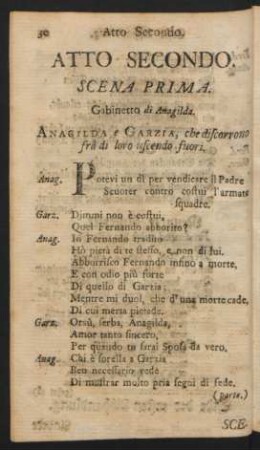 30 Atto Secondo.
ATTO SECONDO.
SCENA PRIMA.
Gabinetto di Anagilda.
ANAGILDA e GARZIA, che discorrono
frà di loro uscendo fuori.
Anag. Potevi un dì per vendicare il Padre
Scuoter contro costui l'armate
squadre.
Garz. Dimmi non è costui,
Quel Fernando abborito?
Anag. In Fernando tradito
Hò pietà di te stesso, e non di lui.
Abborrisco Fernando infino a morte,
E con odio più forte
Di quello di Garzia;
Mentre mi duol, che d'una morte cade,
Di cui merta pietade.
Garz. Orsù, serba, Anagilda,
Amor tanto sincero,
Per quando tu sarai Sposa da vero.
Anag. Chi è sorella a Garzia
Ben necessario vede
Di mostrar molto pria segni di fede.
(parte.)
SCE-